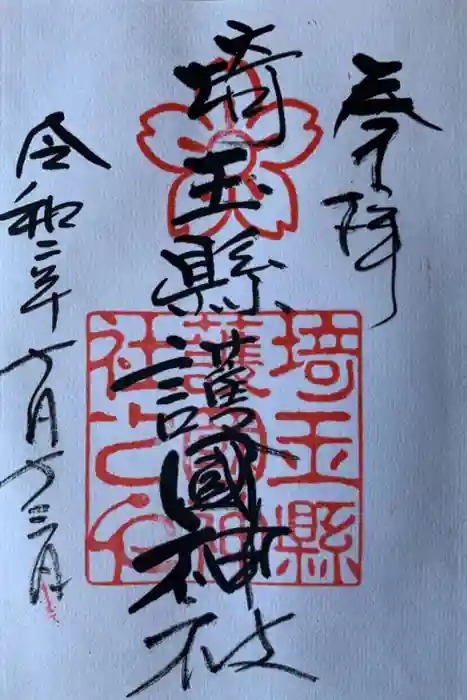 奉拝
埼玉縣護國神社
令和二年十月十三日
埼玉縣
護國神
社之印